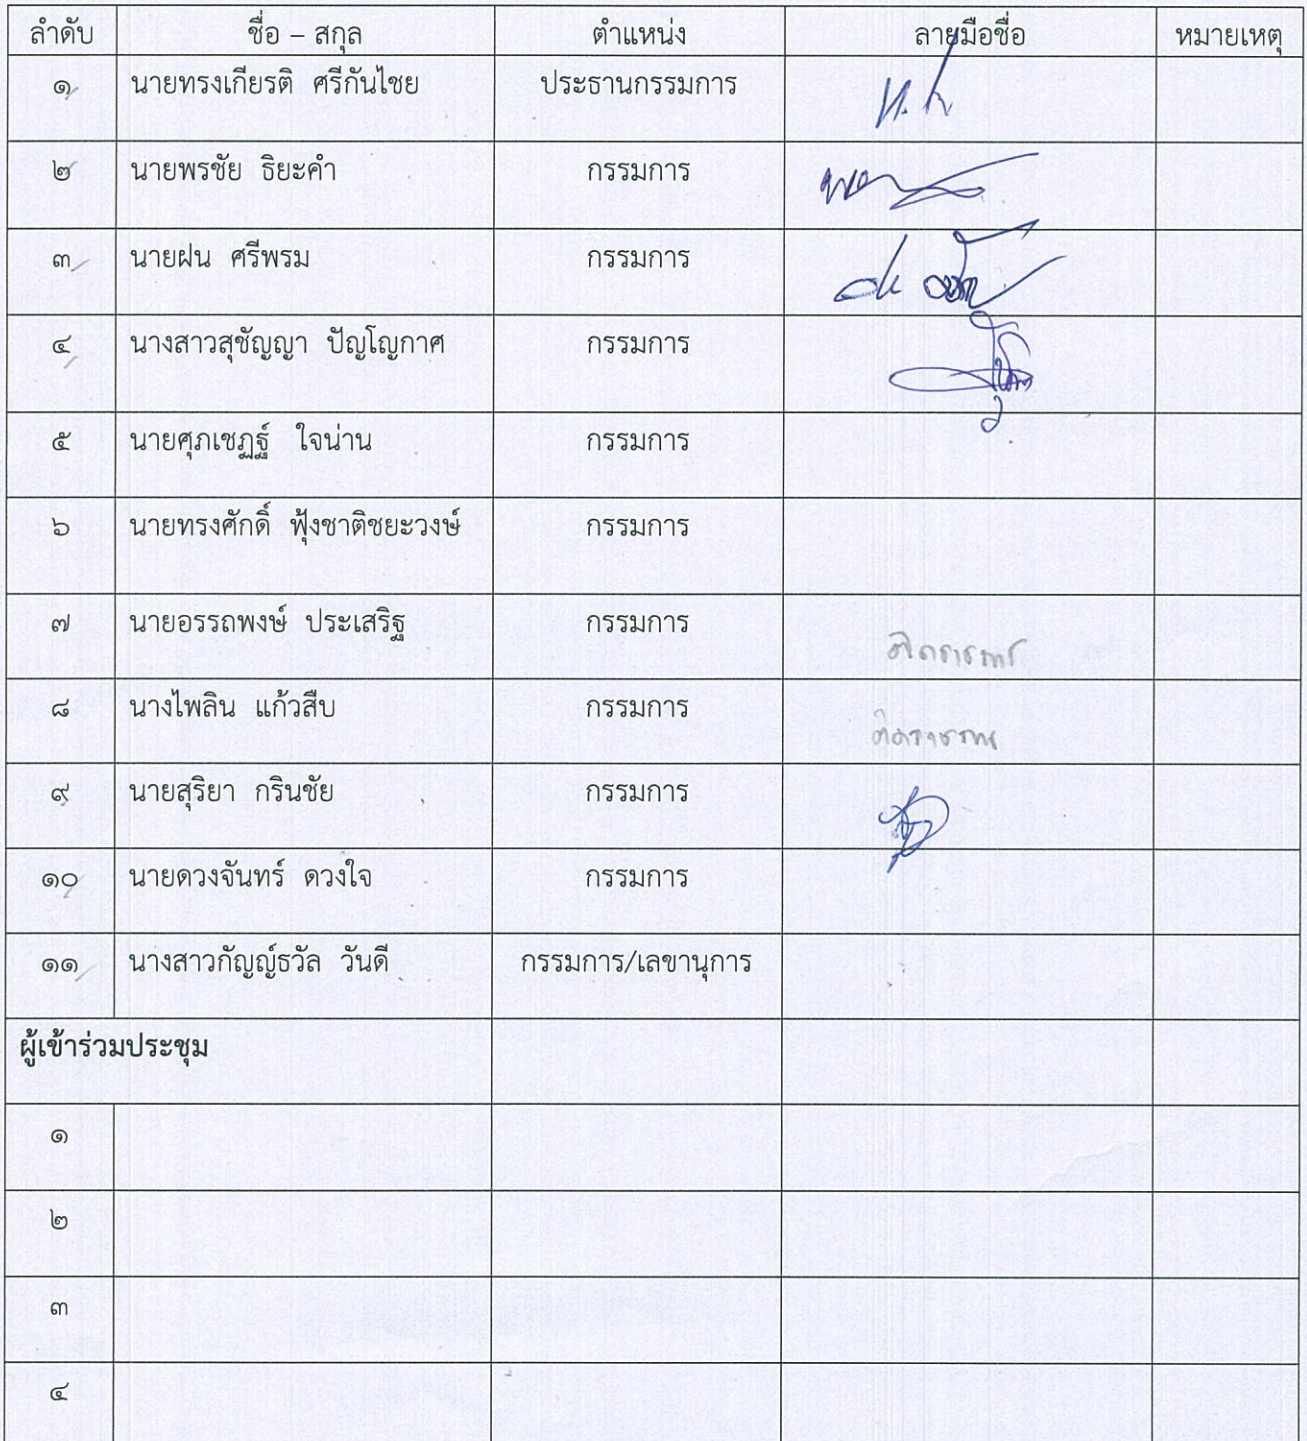 ลำดับ ชื่อ – สกุล ตำแหน่ง ลายมือชื่อ หมายเหตุ
๑ นายทรงเกียรติ ศรีกันไชย ประธานกรรมการ
๒ นายพรชัย ธิยะคำ กรรมการ
๓ นายฝน ศรีพรม กรรมการ
๔ นางสาวสุชัญญา ปัญโญกาศ กรรมการ
๕ นายศุภเชฏฐ์ ใจน่าน กรรมการ
๖ นายทรงศักดิ์ ฟุ้งชาติชยะวงษ์ กรรมการ
๗ นายอรรถพงษ์ ประเสริฐ กรรมการ ติดราชการ
๘ นางไพลิน แก้วสืบ กรรมการ ติดราชการ
๙ นายสุริยา กรินชัย กรรมการ
๑๐ นายดวงจันทร์ ดวงใจ กรรมการ
๑๑ นางสาวกัญญ์ธวัล วันดี กรรมการ/เลขานุการ
ผู้เข้าร่วมประชุม
๑
๒
๓
๔